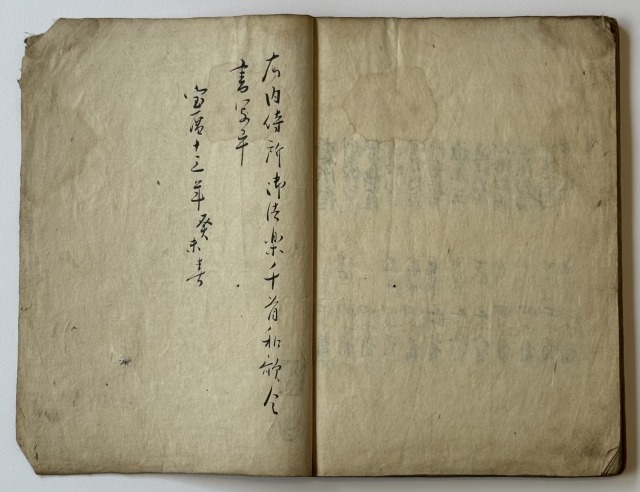 右内侍所御法楽千首和歌令
書写畢
宝暦十三年癸未春